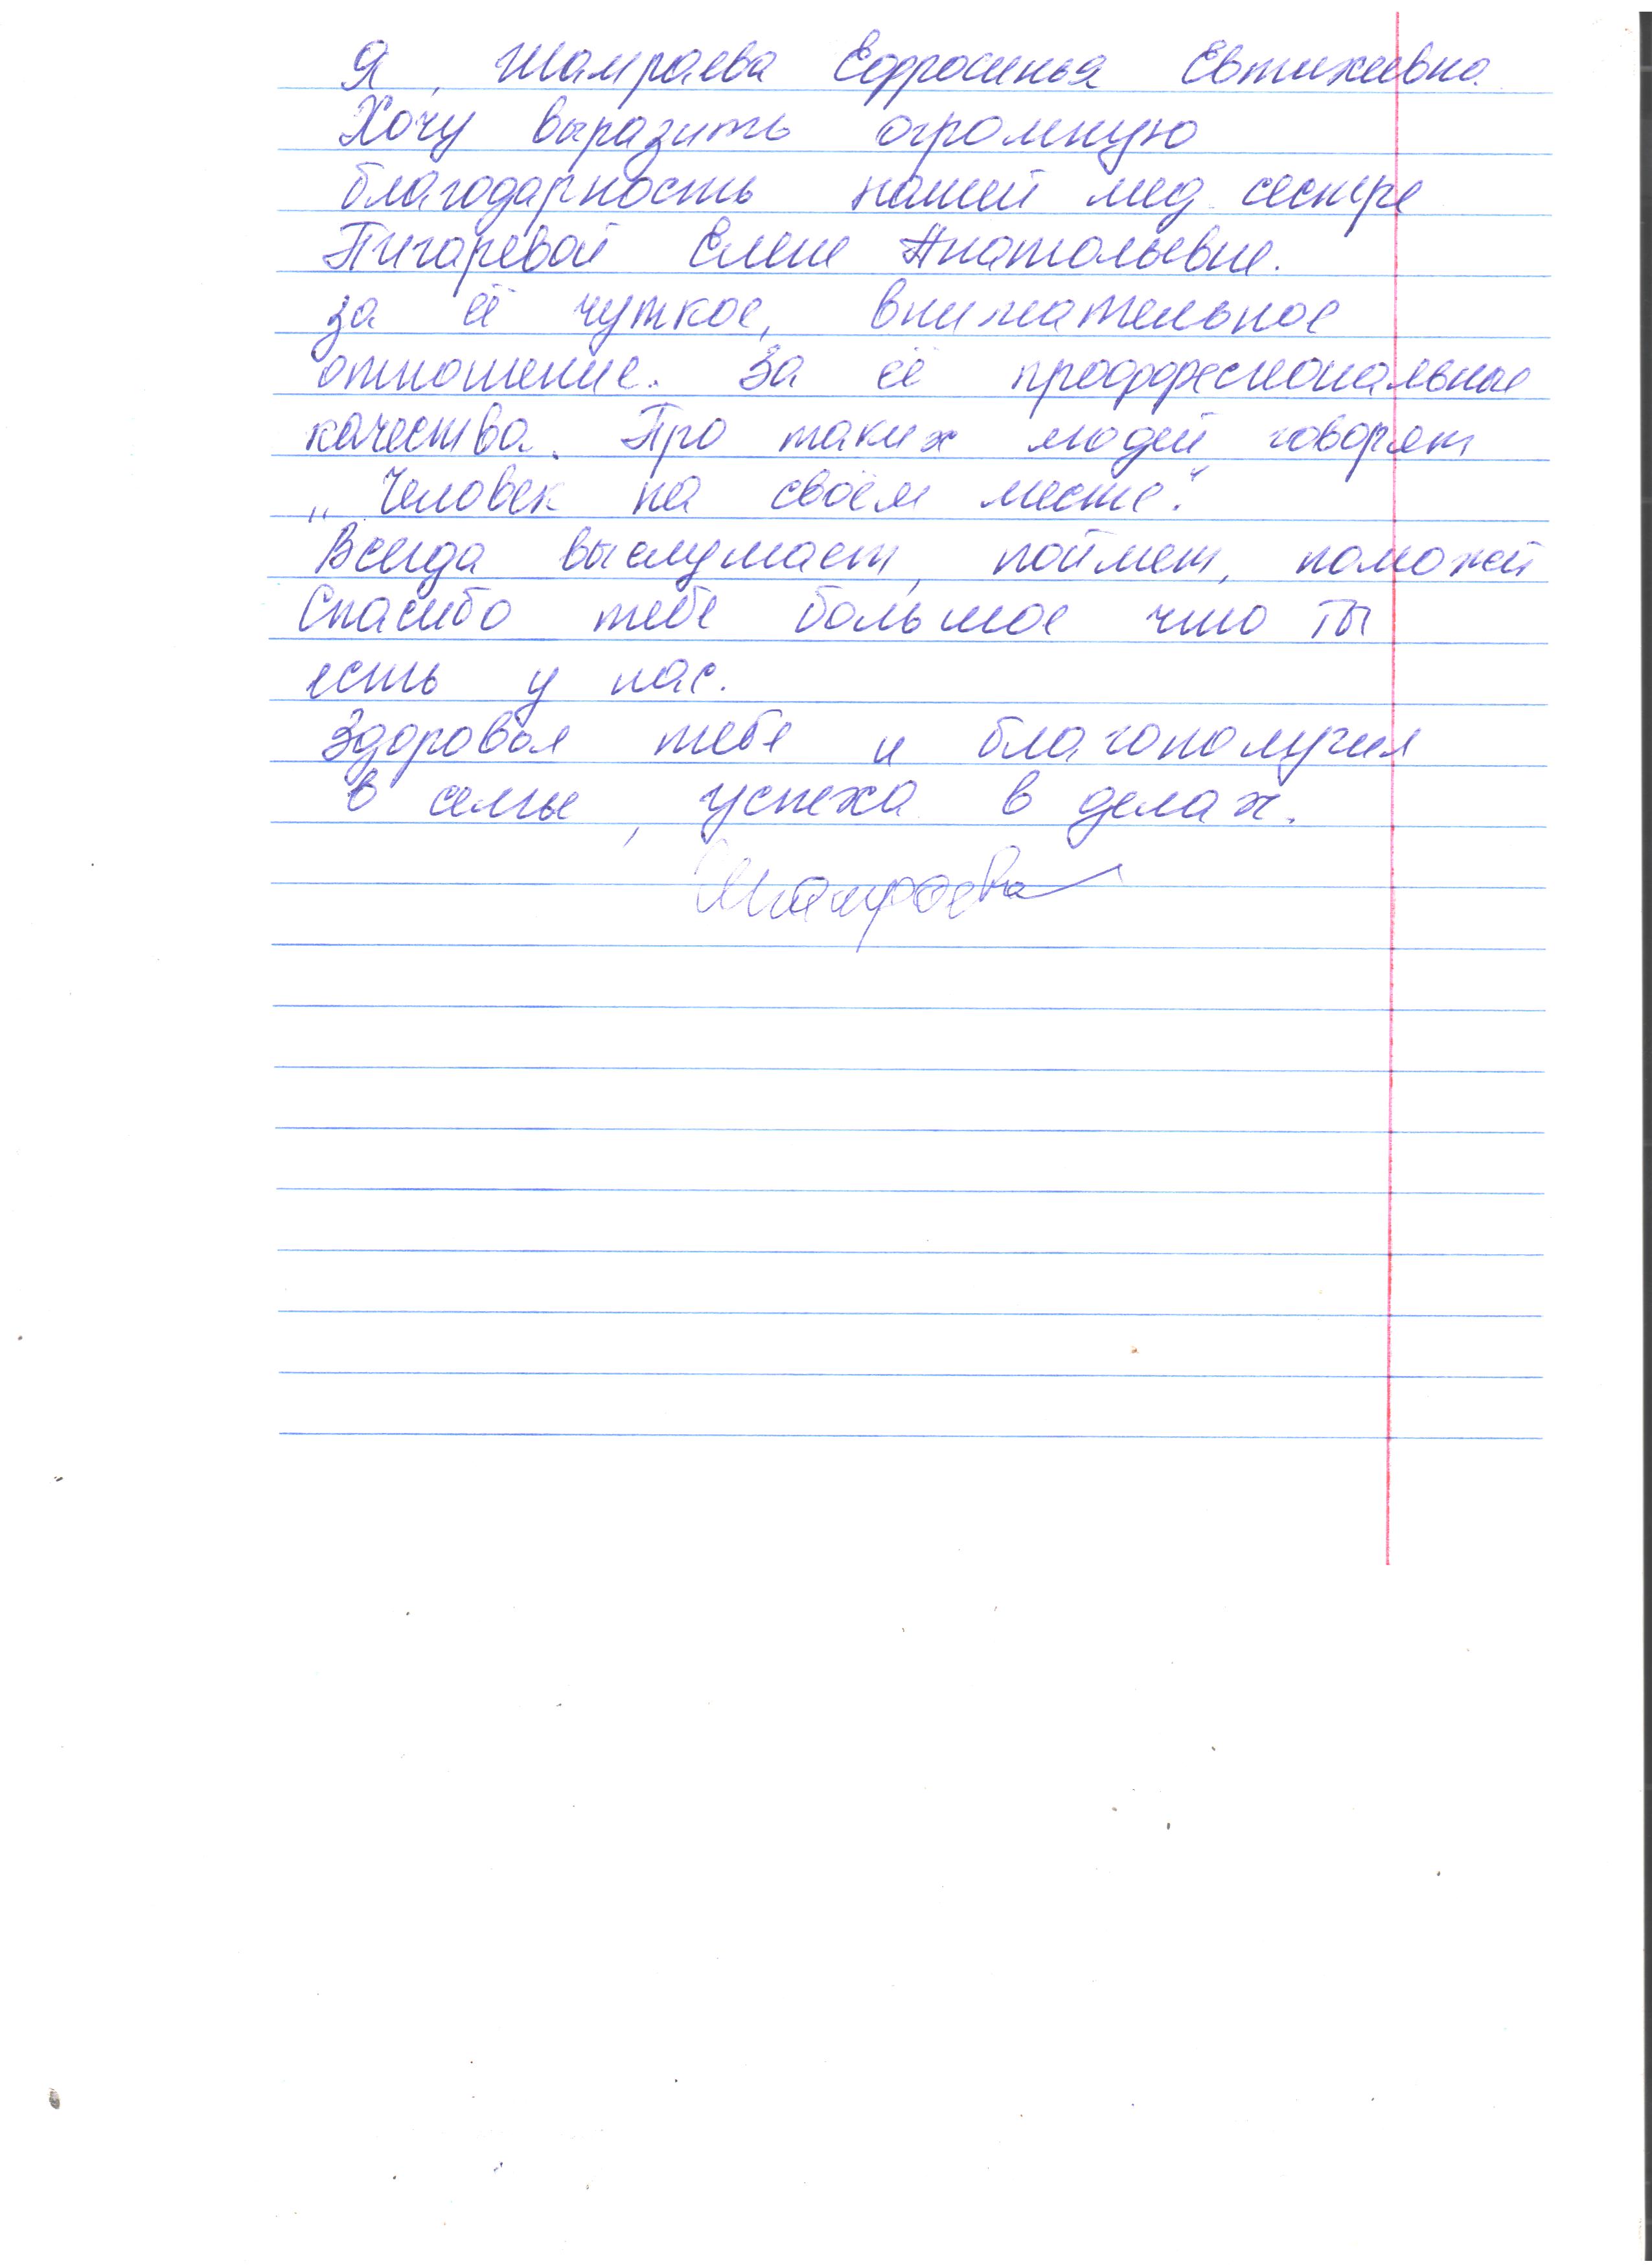 Я, Шамраева Ефросинья Евтихеевна.
Хочу выразить огромную
благодарность нашей мед. сестре
Пигаревой Елене Анатольевне.
за её чуткое, внимательное
отношение. За её проффесиональные
качества. Про таких людей говорят
„Человек на своём месте".
Всегда выслушает, поймет, поможет
Спасибо тебе большое что ты
есть у нас.
Здоровья тебе и благополучия
в семье, успеха в делах.
Шамраева